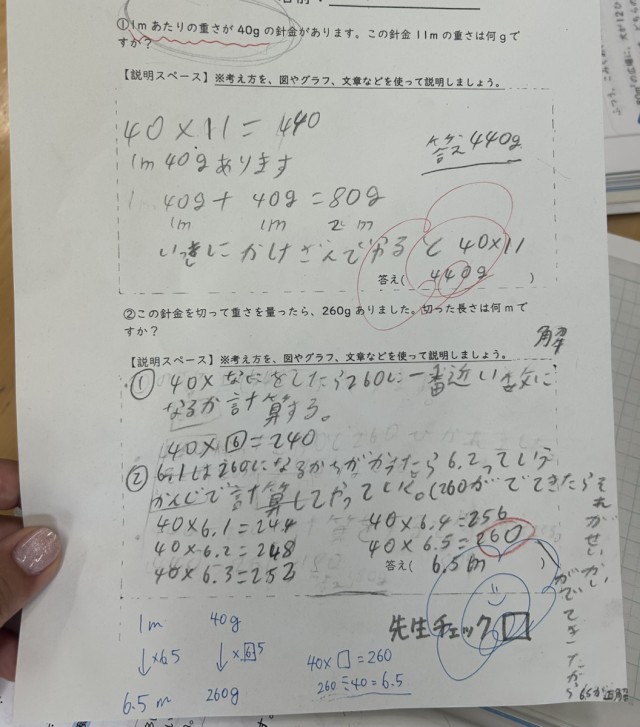 ①1mあたりの重さが40gの針金があります。この針金11mの重さは何gで
すか?
【説明スペース】※考え方を、図やグラフ、文章などを使って説明しましょう。
40×11=440
答え440g
1m 40gあります
40g+40g=80g
1m 1m 2m
いっきにかけざんでやると 40×11
答え( 440g )
②この針金を切って重さを量ったら、260gありました。切った長さは何mで
すか?
【説明スペース】※考え方を、図やグラフ、文章などを使って説明しましょう。
① 40×なにをしたら260に一番近い数に
なるか計算する。
40×6=240
② 6.1は260になるか ちがかったら6.2っていう
かんじで計算してやっていく。(260がでてきたらそれがせいかい
40×6.1=244
40×6.2=248
40×6.3=252
40×6.4=256
40×6.5=260
答え( 6.5m )
がでてきたから6.5が正解
先生チェック□
1m 40g
↓×6.5 ↓×6.5
6.5m 260g
40×□=260
260÷40=6.5